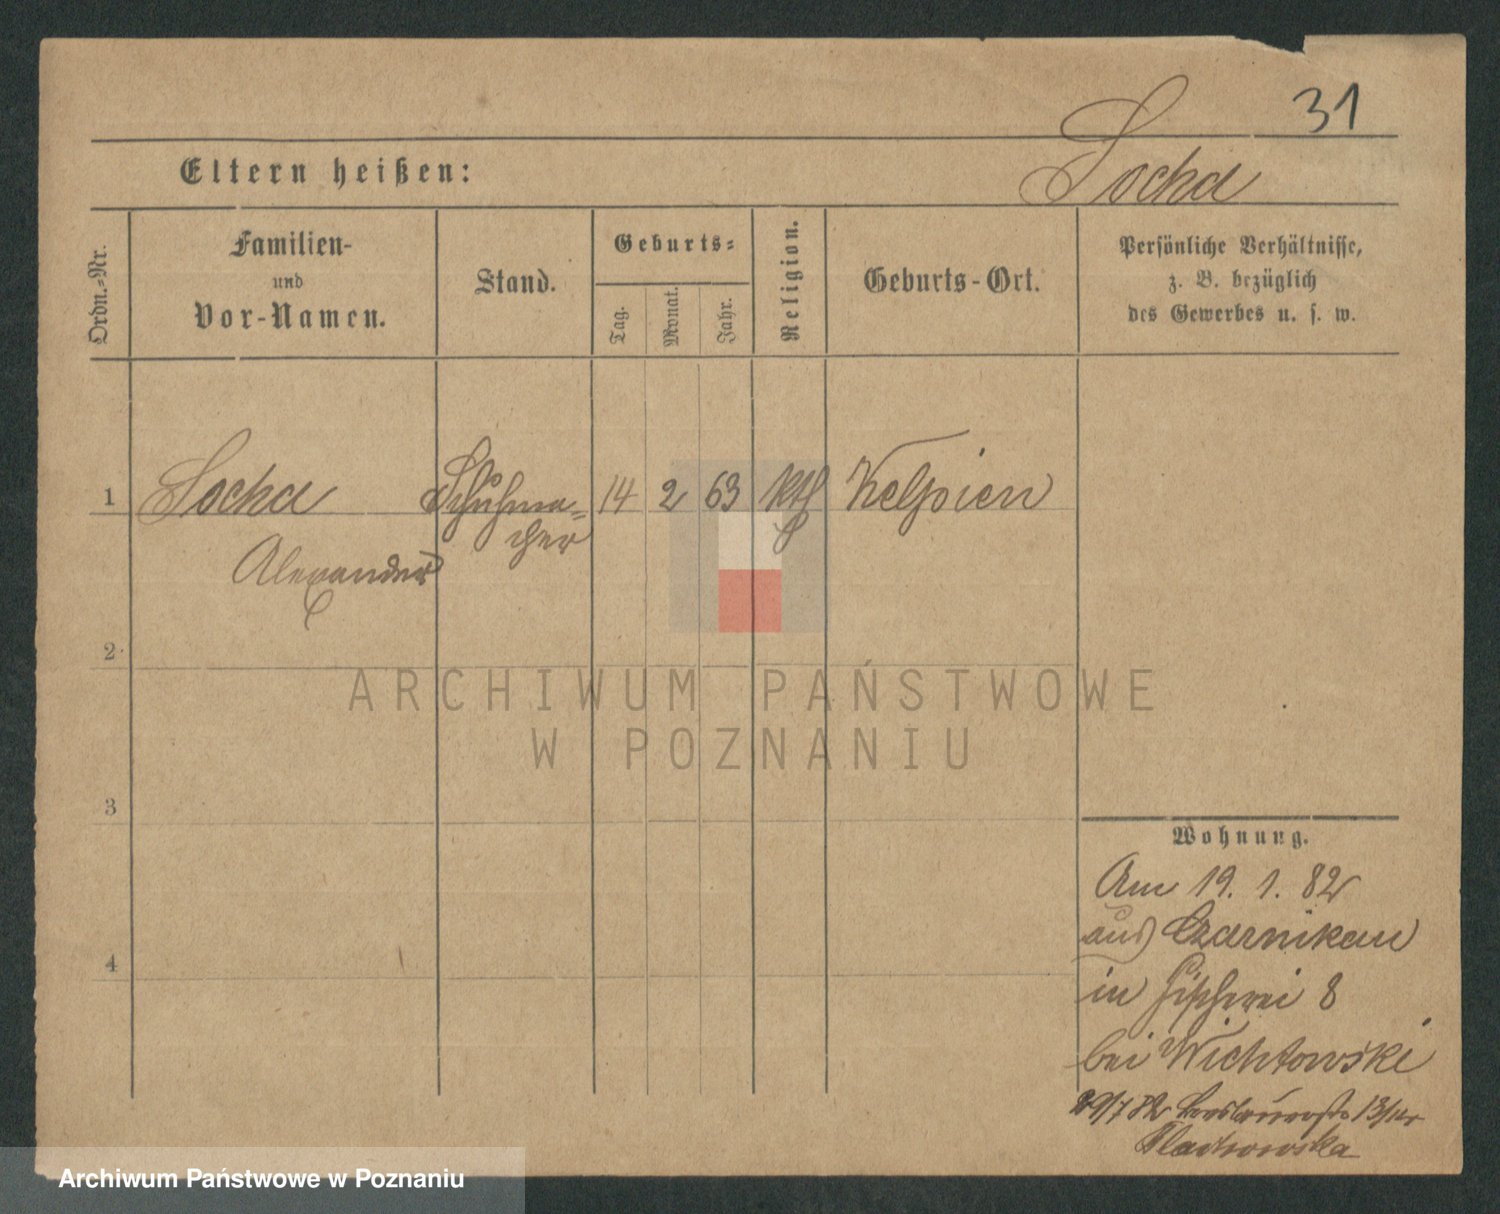 31
Socha
Eltern heißen:
Ordn.-Nr.
Familien-
und
Vor-Namen.
Stand.
Geburts-
Tag.
Monat.
Jahr.
Religion.
Geburts-Ort.
Persönliche Verhältnisse,
z. B. bezüglich
des Gewerbes u. s. w.
1 Socha Schuhma= 14 2 63 kth Kelpien
cher
Alexander
2
3
4
Wohnung.
Am 19. 1. 82
aus Czarnikau
in Fischerei 8
bei Wichtowski
29/7 82 13/14
ARCHIWUM PAŃSTWOWE
W POZNANIU
Archiwum Państwowe w Poznaniu